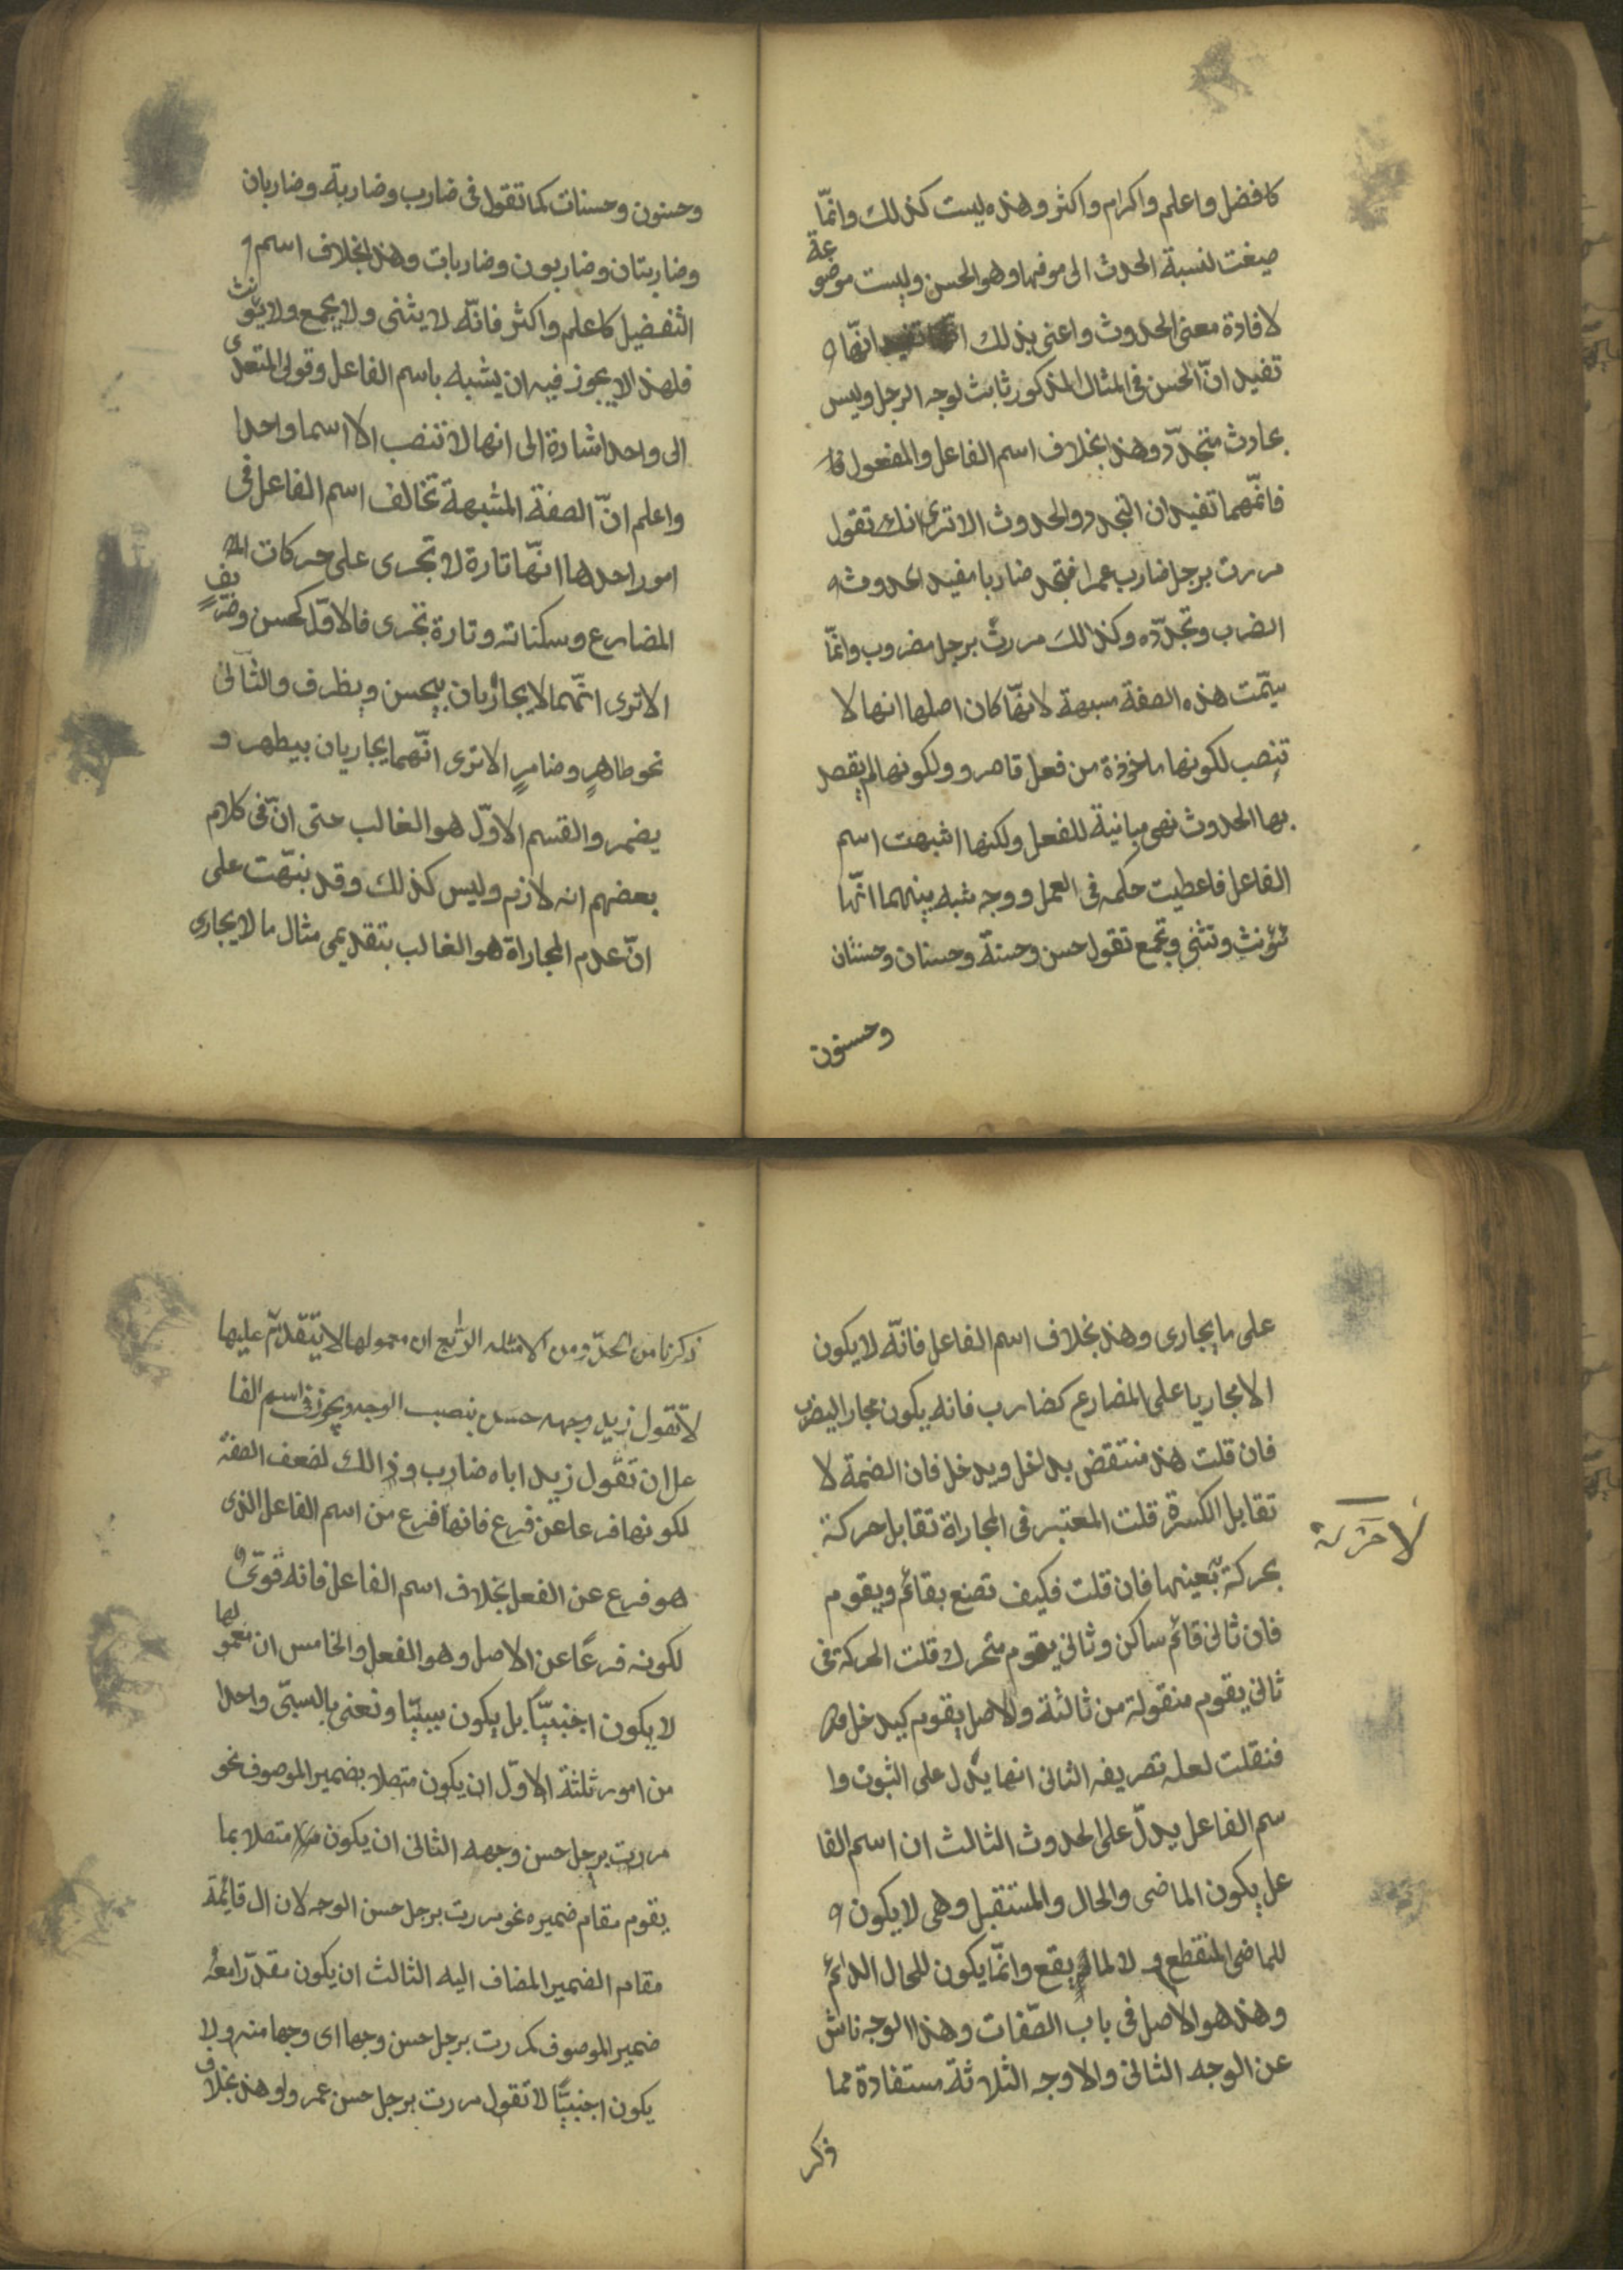 كافضل واعلم واكرام واكثر وهذه ليست كذلك وانّما
صيغت لنسبة الحدث الى موفها وهو الحسن وليست موضوعة
لافادة معنى الحدوث واعنى بذلك انّها
تفيد انّ الحسن فى المثال المذكور ثابث لوجه الرجل وليس
بحادث متجدّد وهذا بخلاف اسم الفاعل والمفعول
فانّهما تفيدان التجدد والحدوث الا ترى انك تقول
مررت برجل ضارب عمرا فتجد ضاربا مفيد الحدوث
الضرب وتجدّده وكذالك مررتُ برجل مضروب وانّما
سمّت هذه الصفة مسبهة لانّها كان اصلها انها لا
تنصب لكونها ماخوذة من فعل قاصر وولكونها لم يقصد
بها الحدوث فهى مبانية للفعل ولكنها اشبهت اسم
الفاعل فاعطيت حكمه فى العمل ووجه شبه بينهما انّها
تؤنث وتثنى وتجمع تقول حسن وحسنة وحسنان وحسنتان
وحسنون
وحسنون وحسنات كما تقول فى ضارب وضاربة وضاربان
وضاربتان وضاربون وضاربات وهذا بخلاف اسم
التفضيل كاعلم واكثر فانّه لا يثنى ولا يجمع ولا يؤنث
فلهذا لا يجوز فيه ان يشبه باسم الفاعل وقولى المتعدى
الى واحد اشارة الى انها لا تنصب الا اسما واحدا
واعلم انّ الصفة المشبهة تخالف اسم الفاعل فى
امور احدها انّها تارة لا تجرى على حركات
المضارع وسكناته وتارة تجرى فالاوّل كحسن وضريف
الا ترى انّهما لا يجاريان بيحسن ويظرف والثانى
نحو طاهرٍ وضامرٍ الا ترى انّهما يجاريان بيطهر و
يضمر والقسم الاوّل هو الغالب حتى انّ فى كلام
بعضهم انه لازم وليس كذلك وقد نبّهت على
انّ عدم المجاراة هو الغالب بتقديمى مثال ما لا يجارى
على ما يجارى وهذا بخلاف اسم الفاعل فانّه لا يكون
الا مجاريا على المضارع كضارب فانه يكون مجار اليضرب
فان قلت هذا منتقض بداخل ويدخل فان الضمة لا
تقابل الكسرة قلت المعتبر فى المجاراة تقابل حركة
لا حركة
بحركة بعينها فان قلت فكيف تصنع بقائم ويقوم
فان ثانى قائم ساكن وثانى يقوم متحرك قلت الحركة فى
ثانى يقوم منقولة من ثالثة والاصل يقوم كيدخل
فنقلت لعله تصريفه الثانى انها يدل على الثبوت وا
سم الفاعل يدلّ على الحدوث الثالث ان اسم الفا
عل يكون الماضى والحال والمستقبل وهى لا يكون
للماضى المنقطع ولا لما لم يقع وانّما يكون للحال الدائم
وهذا هو الاصل فى باب الصّفات وهذا الوجه ناش
عن الوجه الثانى والاوجه الثلاثة مستفادة مما
ذكر
ذكرنا من الحدّ ومن الامثله الرابع ان معمولها لا يتقدّم عليها
لا تقول زيد وجهه حسن بنصب الوجه ويجوز فى اسم الفا
عل ان تقول زيد اباه ضارب وذالك لضعف الصفة
لكونها فرعا عن فرع فانها فرع من اسم الفاعل الذى
هو فرع عن الفعل بخلاف اسم الفاعل فانه قوىّ
لكونه فرعًا عن الاصل وهو الفعل والخامس ان معمولها
لا يكون اجنبيّاً بل يكون سببيّا ونعنى بالسببّى واحدا
من امور ثلثة الاوّل ان يكون متصلا بضمير الموصوف نحو
مررت برجل حسن وجهه الثانى ان يكون متصلا بما
يقوم مقام ضميره نحو مررت برجل حسن الوجه لان ال قائمة
مقام الضمير المضاف اليه الثالث ان يكون مقدّرا معه
ضمير الموصوف كمررت برجل حسن وجها اى وجها منه ولا
يكون اجنبيًّا لا تقول مررت برجل حسن عمرو لو هذا بخلاف